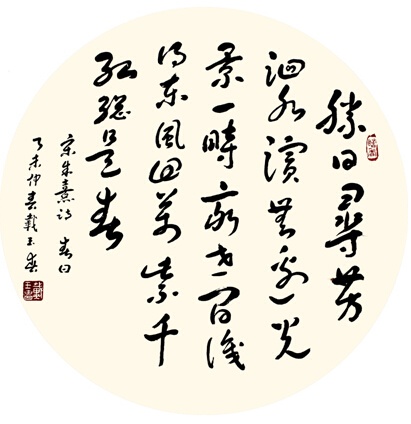 勝日尋芳
泗水濱無邊光
景一時新等閒識
得東風面萬紫千
紅總是春
宋朱熹詩 春日
未仲春戴玉